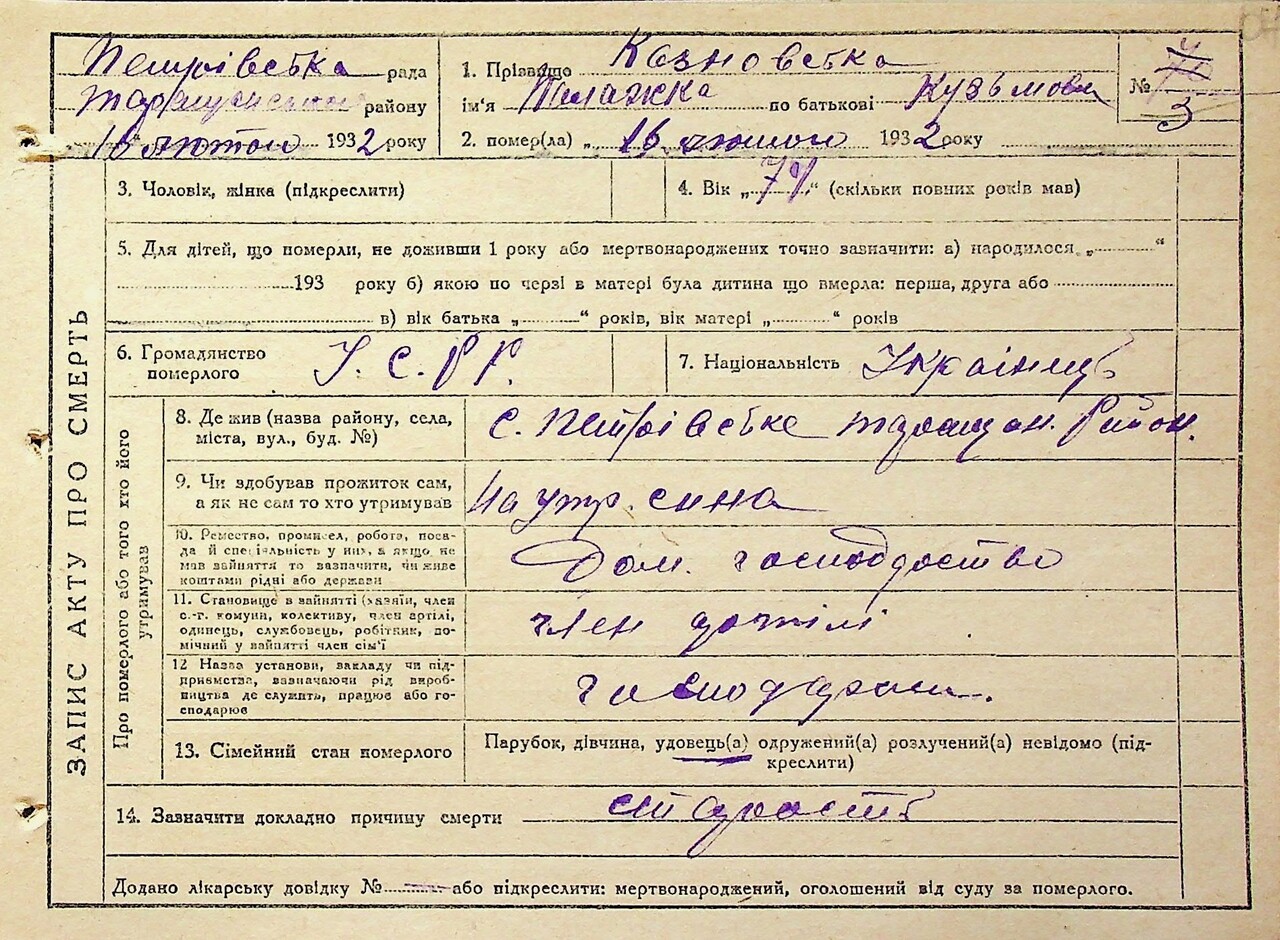 Петрівська рада
району
16 лютого 1932 року
1. Прізвище Казновська
ім'я Палажка по батькові Кузьмовн
2. помер(ла) „ 16 лютого 1932 року
№ 3
3. Чоловік, жінка (підкреслити)
4. Вік „ 74 “ (скільки повних років мав)
5. Для дітей, що померли, не доживши 1 року або мертвонароджених точно зазначити: а) народилося „ “
193 року б) якою по черзі в матері була дитина що вмерла: перша, друга або
в) вік батька „ “ років, вік матері „ “ років
6. Громадянство
померлого
У. С. Р Р.
7. Національність Українець
ЗАПИС АКТУ ПРО СМЕРТЬ
Про померлого або того хто його
утримував
8. Де жив (назва району, села,
міста, вул., буд. №)
с. Петрівське таращан. Район.
9. Чи здобував прожиток сам,
а як не сам то хто утримував
На утр. сина
10. Ремество, промисел, робота, поса-
да й спеціяльність у них, а якщо не
мав зайняття то зазначити, чи живе
коштами рідні або держави
Дом. господарство
11. Становище в зайнятті (хазяїн, член
с.-г. комуни, колективу, член артілі,
одинець, службовець, робітник, по-
мічний у зайнятті член сім'ї
член артілі
12 Назва установи, закладу чи під-
приємства, зазначаючи рід вироб-
ництва де служить, працює або го-
сподарює
13. Сімейний стан померлого
Парубок, дівчина, удовець(а) одружений(а) розлучений(а) невідомо (під-
креслити)
14. Зазначити докладно причину смерти старость
Додано лікарську довідку № або підкреслити: мертвонароджений, оголошений від суду за померлого.